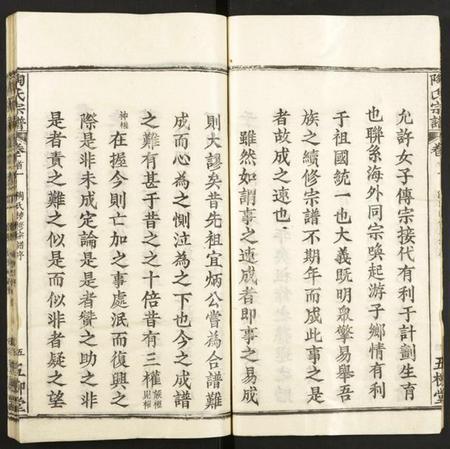 陶氏宗譜
五柳堂
允許女子傳宗接代有利于計劃生育
也聯系海外同宗喚起游子鄉情有利
于祖國統一也大義既明眾擎易舉吾
族之續修宗譜不期年而成此事之是
者故成之速也
雖然如謂事之速成者即事之易成
則大謬矣昔先祖宜炳公嘗為合譜難
成而心為之惻泣為之下也今之成譜
之難有甚于昔之十倍昔有三權族權
神權在握今則亡加之事處泯而復興之
際是非未成定論是是者贊之助之非
是者責之難之似是而似非者疑之望
陶氏宗譜
卷首
陶氏續修宗譜序
五
五柳堂